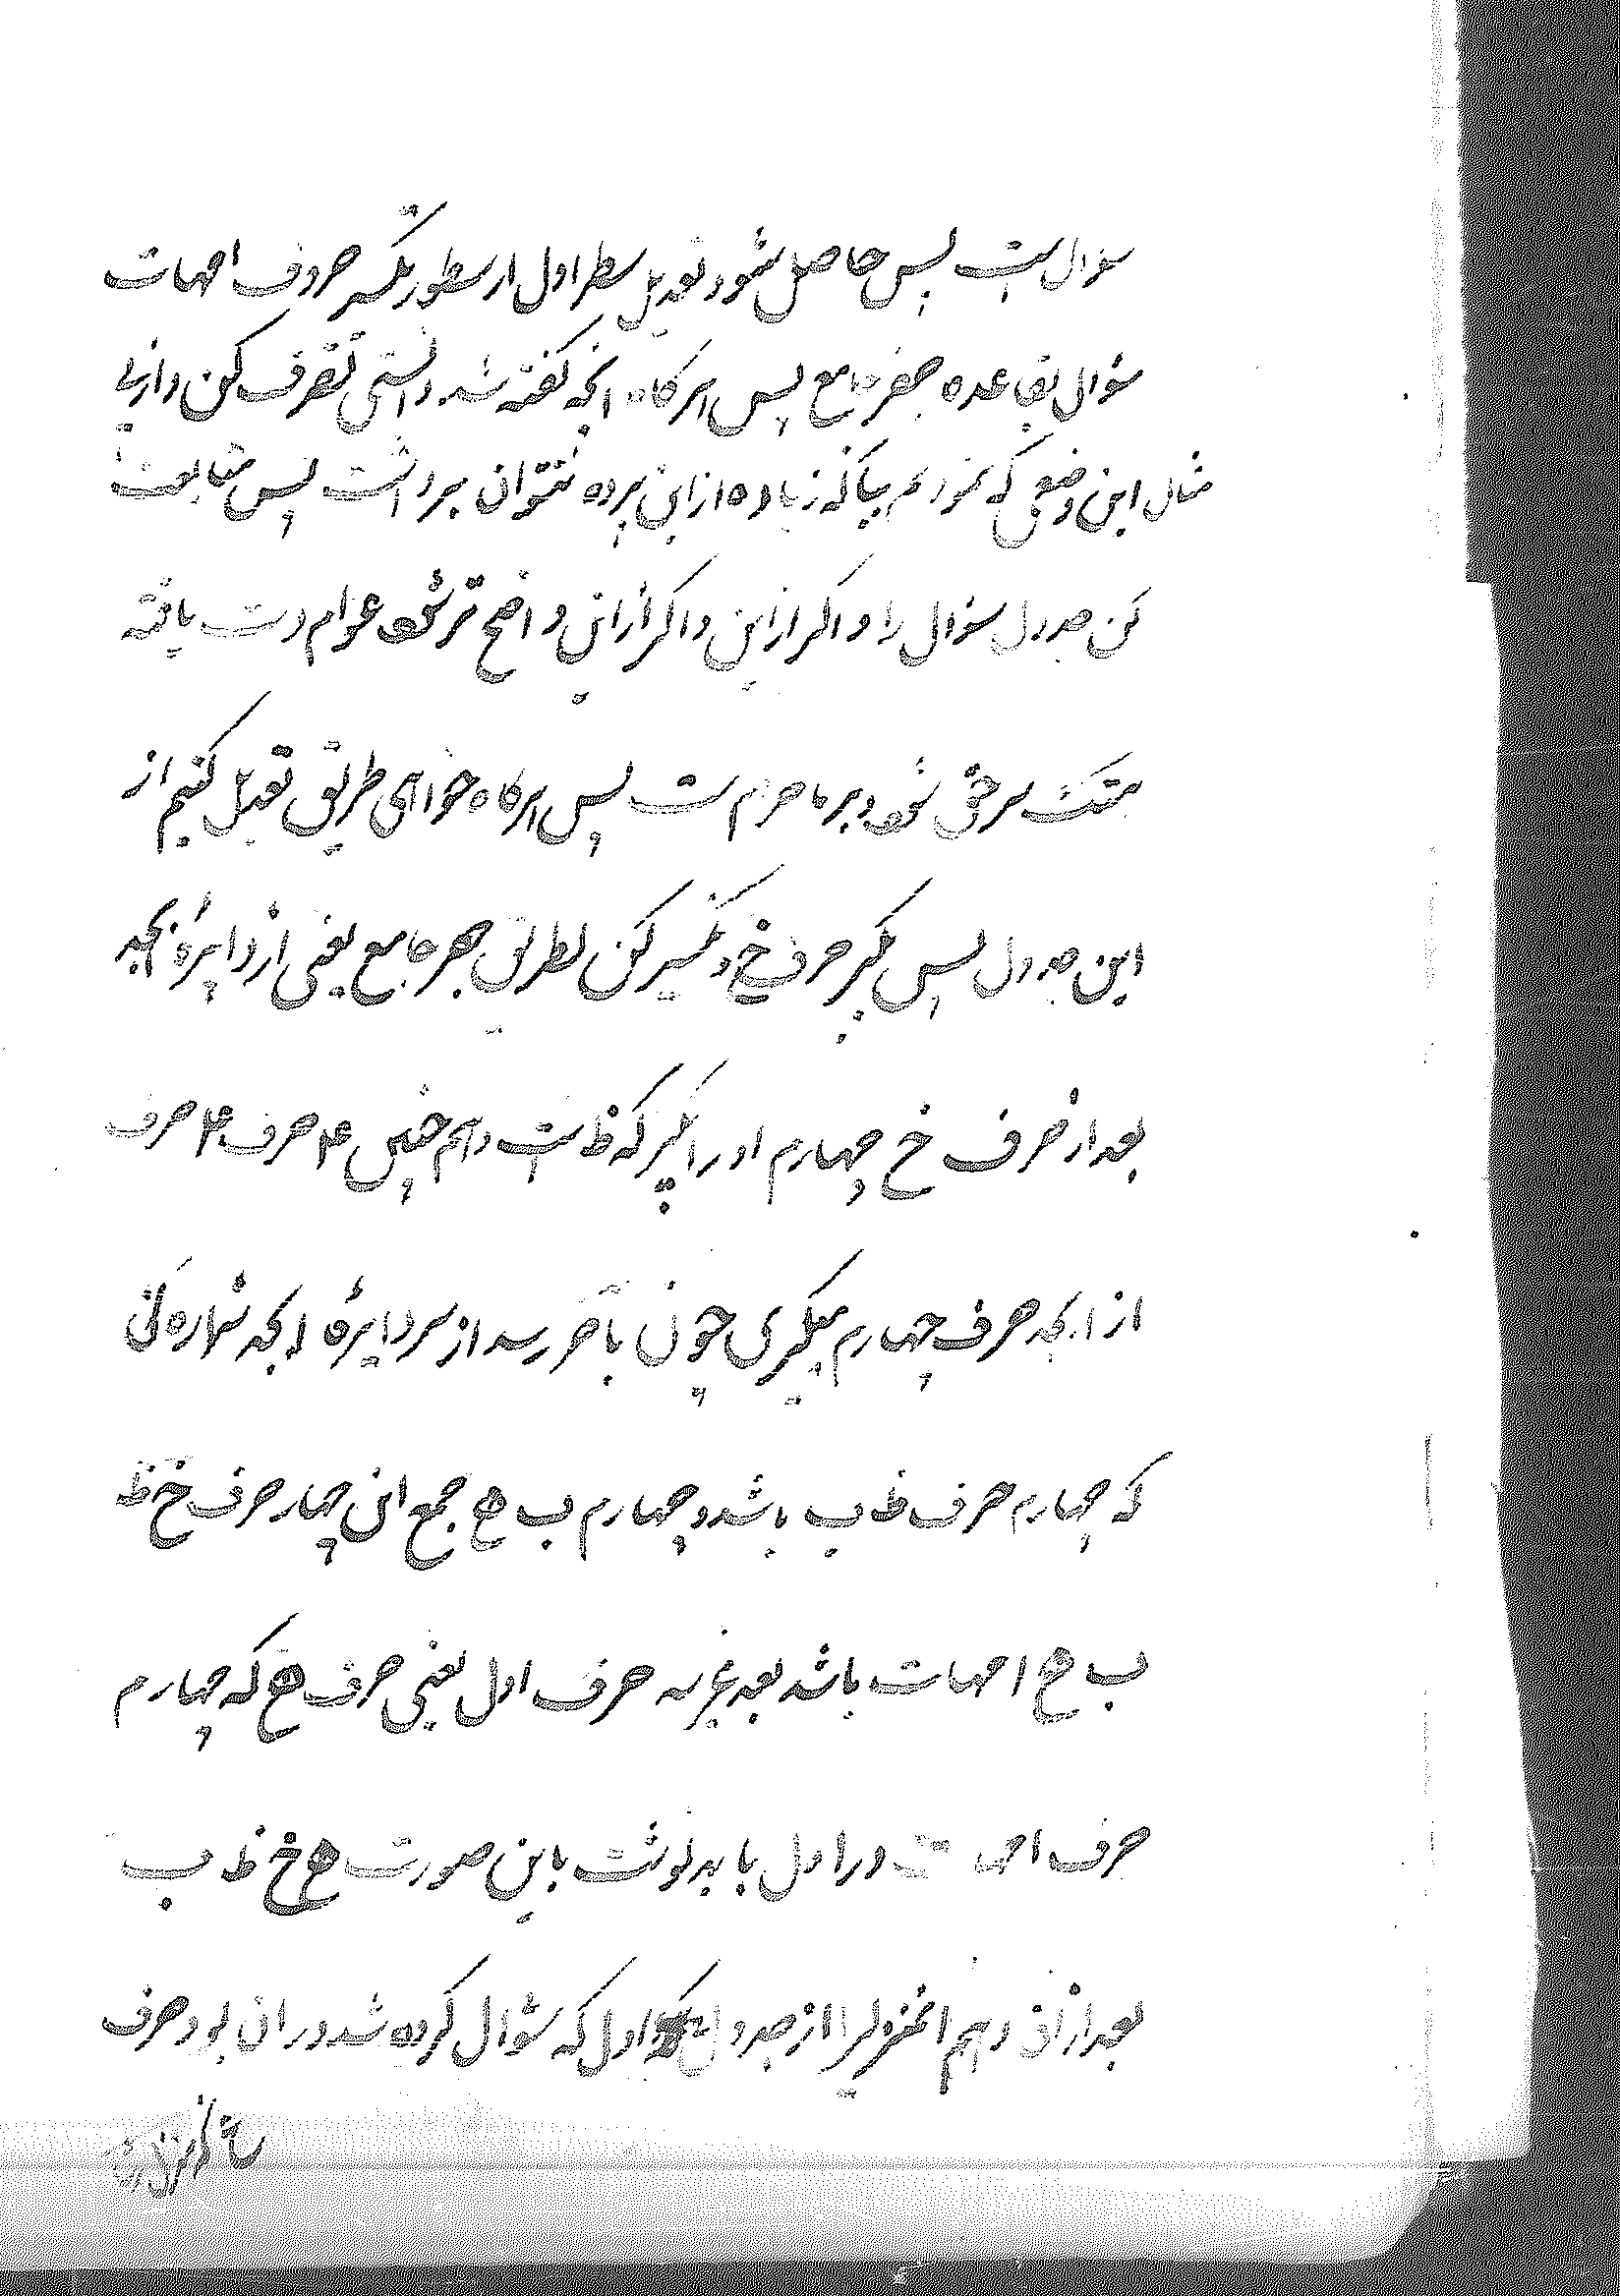 سؤال است پس حاصل شود تعدیل سطر اول از سطور بگیر حروف امهات
سؤال بقاعده جفر جامع پس هرکاه انچه کفته شد دانستی تصرف کن و از بی
مثال این وضعی که نمودیم بیانکه زیاده از این پرده نتوان برداشت پس متابعت
کن جدول سؤال را و اکر از این و اکر از این واضح تر شود عوام دست یافته
هتک سر حق شود و بر ما حرام است پس هرکاه خواهی طریق تعدیل کنیم از
این جدول پس بگیر حرف خ و تکسیر کن بطریق جفر جامع یعنی از دایرهٔ ابجد
بعد از حرف خ چهارم او را بگیر که ظ است و همچنین ۴ حرف ۴ حرف
از ابجد حرف چهارم میگیری چون بآخر رسد از سر دایرهٔ ابجد شماره کنی
که چهارم حرف ظ ب باشد و چهارم ب هـ جمع این چهار حرف خ ظ
ب هـ امهات باشد بعد حرف اول یعنی حرف هـ که چهارم
حرف امهات است در اول باید نوشت باین صورت هـ خ ظ ب
بعد از آن دهم را از جدول اول که سؤال کرده شد در ان بود حرف